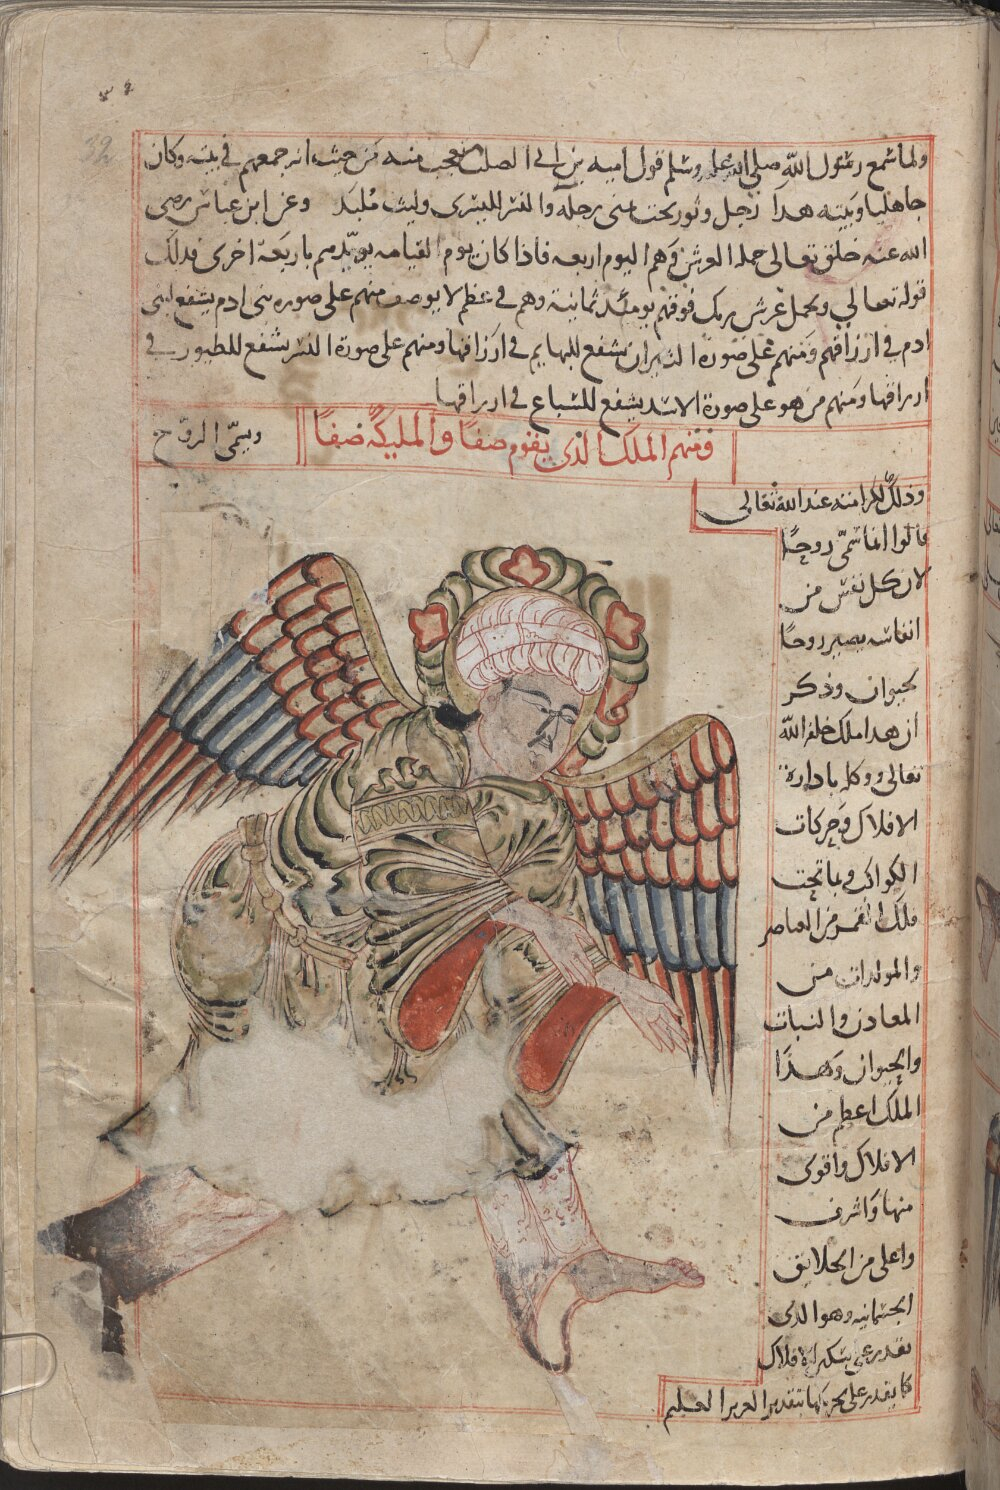 ولما سمع رسول الله صلى الله عليه وسلم قول اميه بن ابي الصلت تعجب منه من حيث انه جمعهم في بيته وكان
جاهليا وبيته هذا رجل وثور تحت يمنى رجله والنسر لليسرى وليث ملبد وعن ابن عباس رضي
الله عنه خلق تعالى حملة العرش وهم اليوم اربعه فاذا كان يوم القيامه يويدهم باربعة اخرى فدلك
قوله تعالى ويحمل عرش ربك فوقهم يومئد ثمانية وهم في عظم لا يوصف ومنهم على صوره بني ادم يشفع لبني
ادم في ارزاقهم ومنهم على صورة الثيران يشفع للبهايم في ارزاقها ومنهم على صورة النسر يشفع للطيور في
ارزاقها ومنهم من هو على صورة الاسد يشفع للسباع في ارزاقها
فمنهم الملك الذي يقوم صفا والمليكة صفا
ويسمى الروح
وذلك لكرامته عند الله تعالى
قالوا انما سمى روحا
لان كل نفس من
انفاسه يصير روحا
لحيوان وذكر
أن هدا ملك خلقه الله
تعالى ووكله بادارة
الافلاك وحركات
الكواكب وما تحت
فلك القمر من العناصر
والمولدات من
المعادن والنبات
والحيوان وهذا
الملك اعظم من
الافلاك واقوى
منها واشرف
واعلى من الخلايق
الجسمانيه وهو الدى
يقدر على تسكين الافلاك
كما يقدر على تحريكها بتقدير العزيز العليم
32